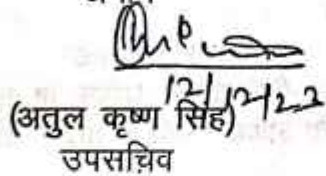 12/12/23
(अतुल कृष्ण सिंह)
उपसचिव